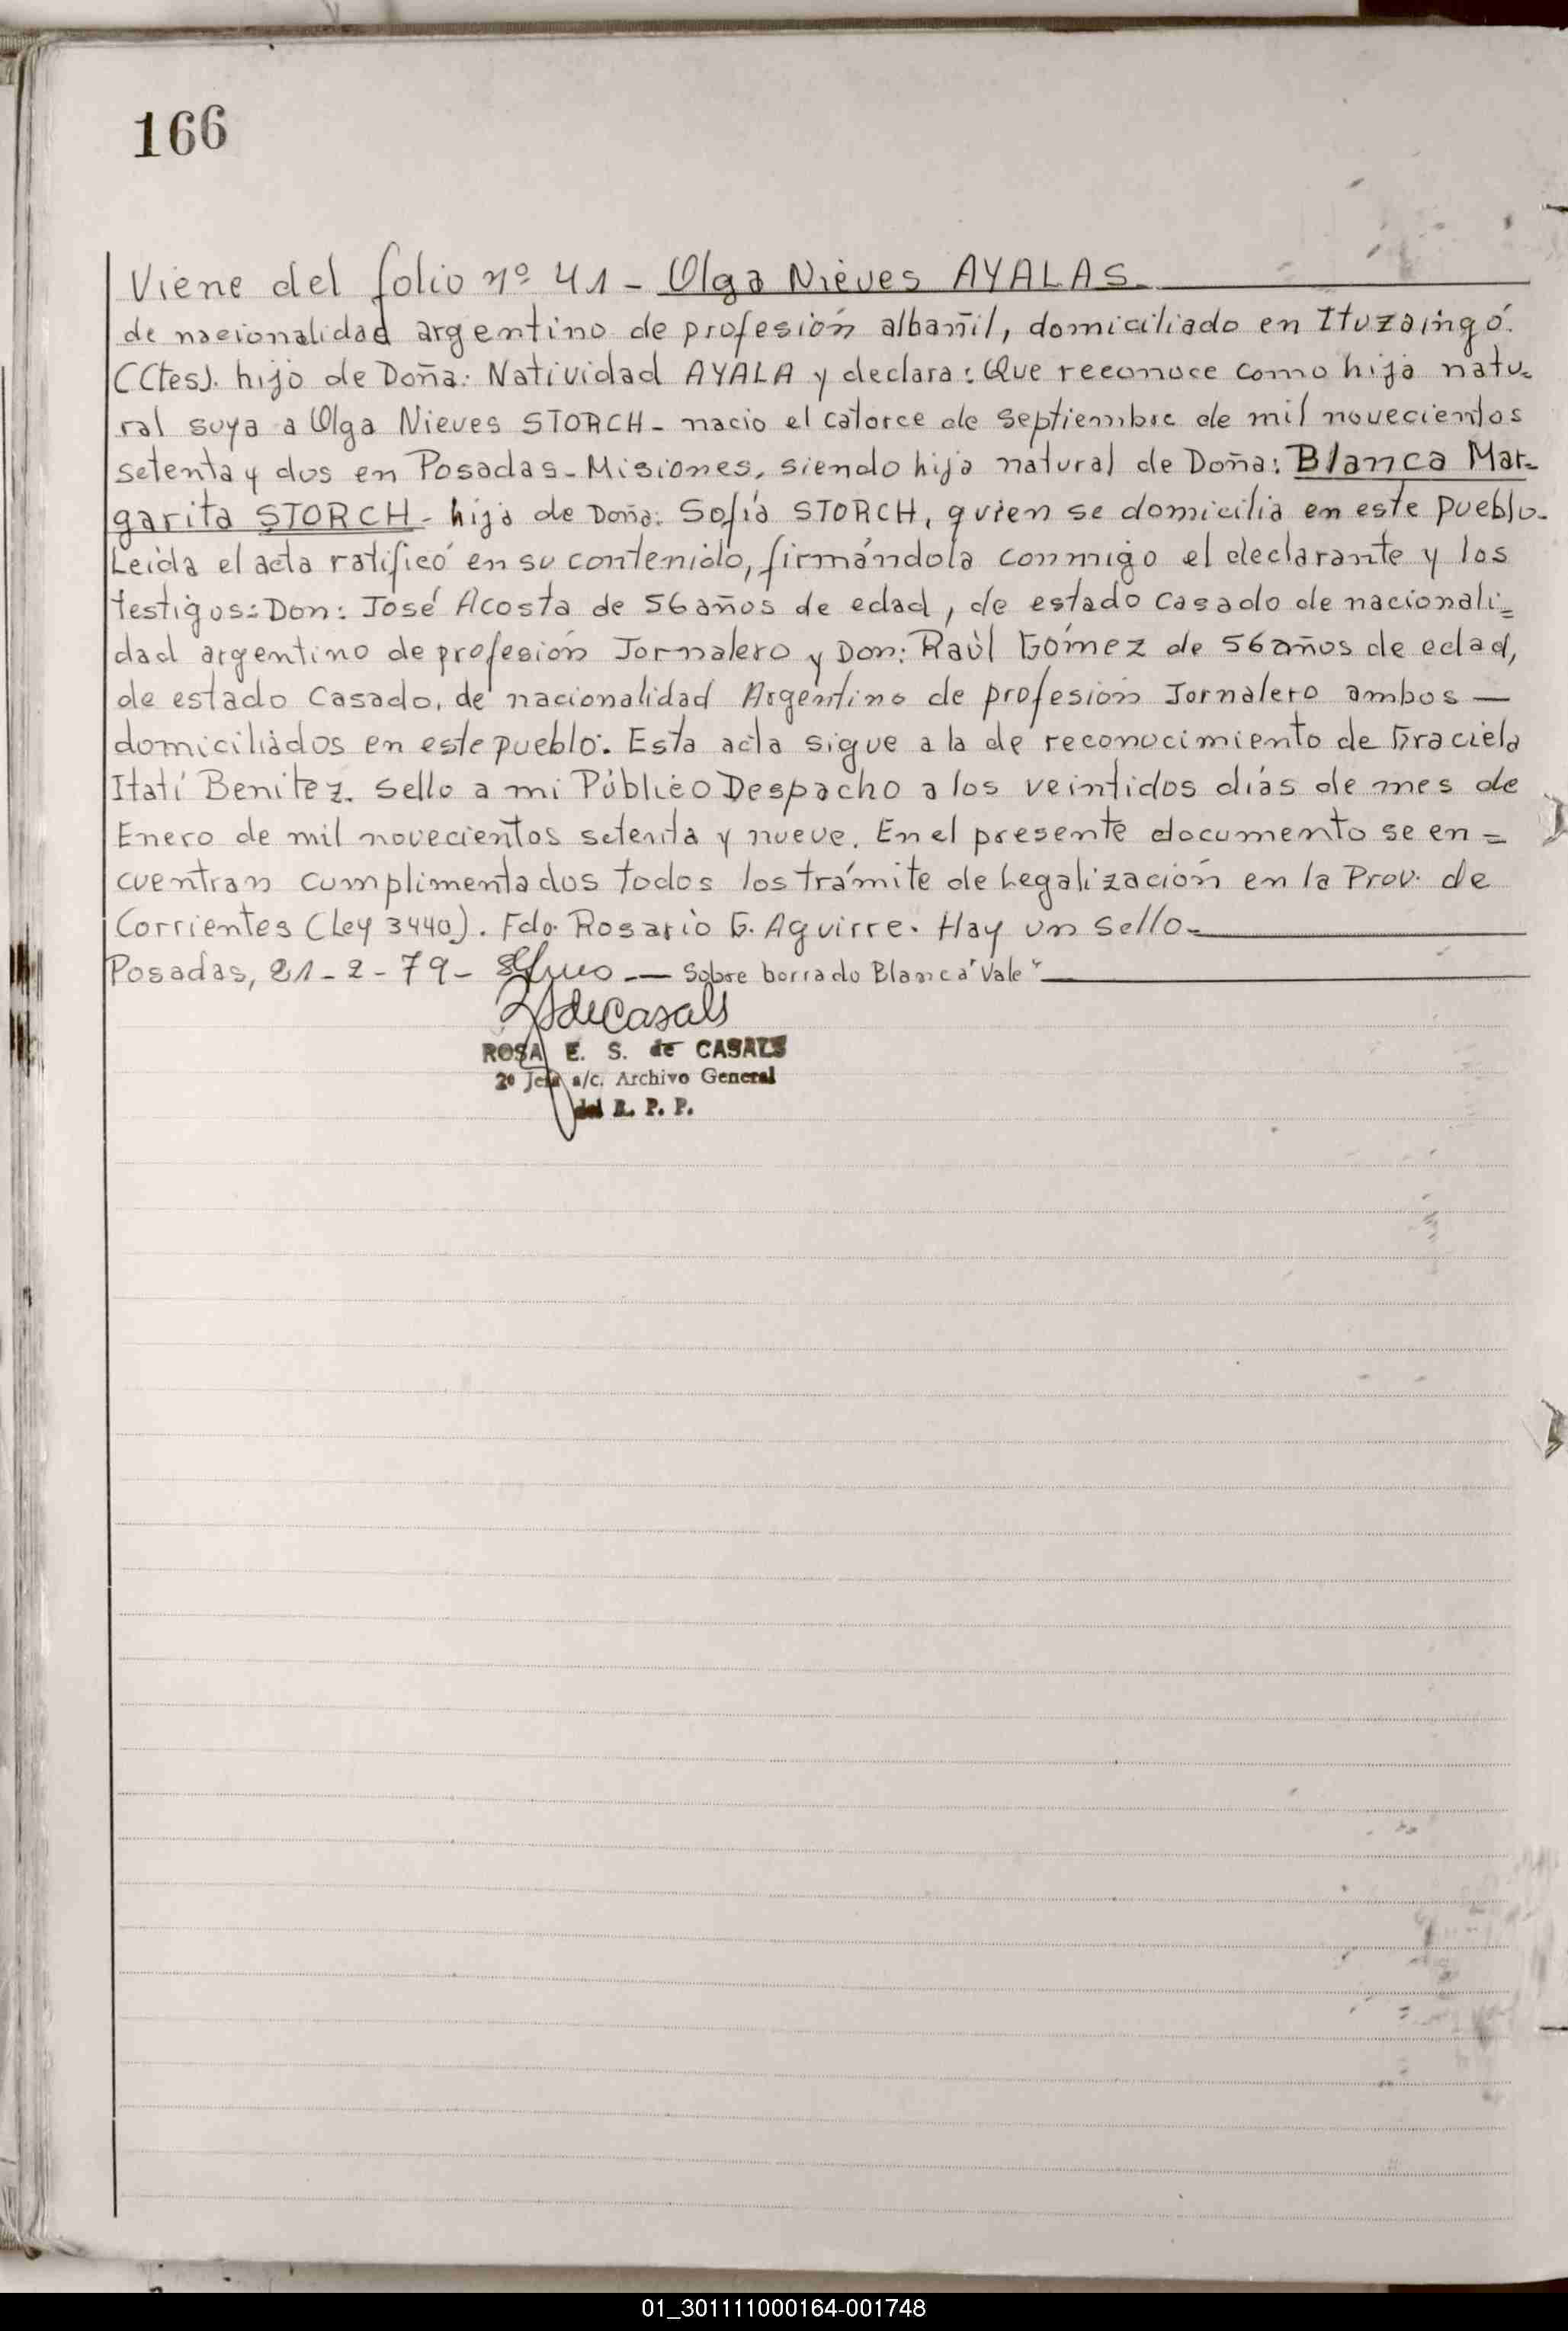 166
Viene del folio nº 41 - Olga Nieves AYALAS.
de nacionalidad argentino de profesión albañil, domiciliado en Ituzaingó.
(Ctes). hijo de Doña: Natividad AYALA y declara: Que reconoce como hija natu-
ral suya a Olga Nieves STORCH - nacio el catorce de septiembre de mil novecientos
setenta y dos en Posadas - Misiones, siendo hija natural de Doña: Blanca Mar-
garita STORCH - hija de Doña: Sofía STORCH, quien se domicilia en este pueblo.
Leida el acta ratificó en su contenido, firmándola conmigo el declarante y los
testigos: Don: José Acosta de 56 años de edad, de estado casado de nacionali=
dad argentino de profesión Jornalero y Don: Raúl Gómez de 56 años de edad,
de estado Casado, de nacionalidad Argentino de profesion Jornalero ambos —
domiciliados en este pueblo. Esta acta sigue a la de reconocimiento de Graciela
Itatí Benitez. Sello a mi Público Despacho a los veintidos días de mes de
Enero de mil novecientos setenta y nueve. En el presente documento se en =
cuentran cumplimentados todos los trámite de Legalización en la Prov. de
Corrientes (Ley 3440). Fdo. Rosario G. Aguirre. Hay un sello.
Posadas, 21 - 2 - 79 - — Sobre borrado Blanca "Vale"
deCasals
ROSA E. S. de CASALS
2º Jefa a/c. Archivo General
del R. P. P.
01_301111000164-001748